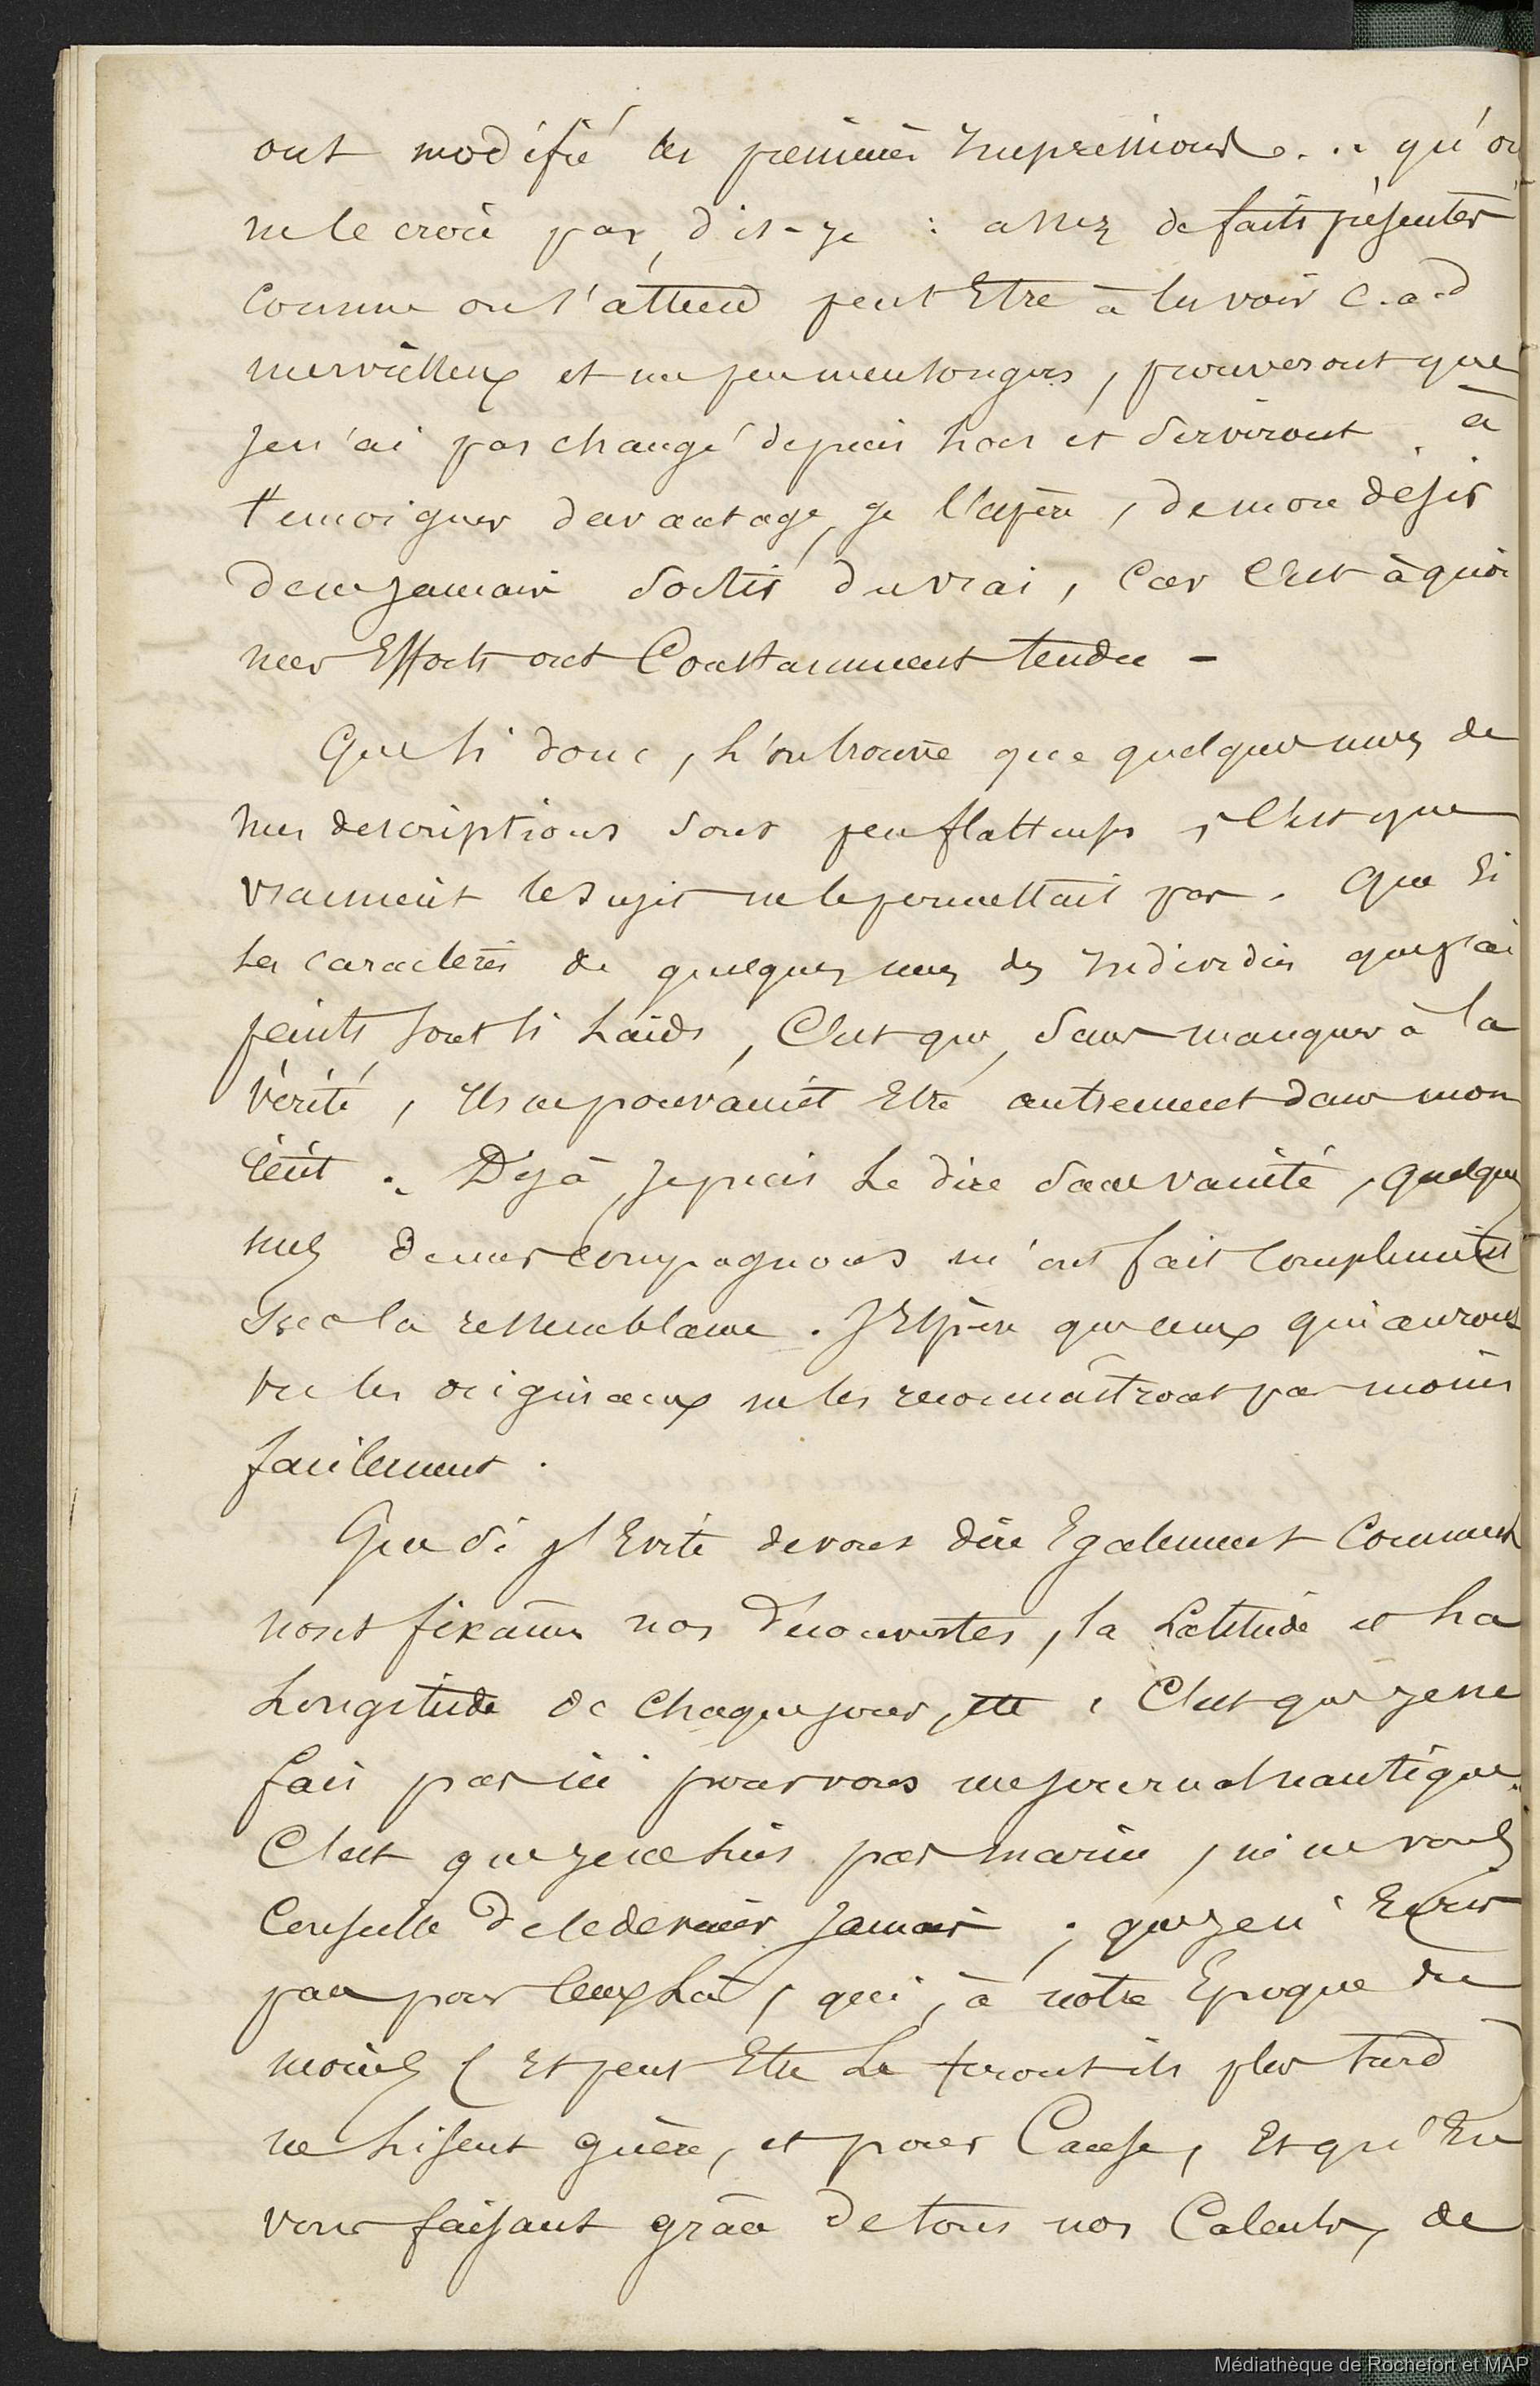 ont modifié les premières Impressions... qu'on
ne le croie pas, dis-je : assez de faits présentés
comme on s'attend peut Etre à les voir c.a.d
merveilleux et un peu mensongers, prouveront que
je n'ai pas changé depuis lors et serviront à
temoigner davantage, je l'espère, de mon désir
de ne jamais sortir du vrai, car C'est à quoi
mes Efforts ont Constamment tendu -
Que si donc, l'on trouve que quelques unes de
mes descriptions sont peu flatteuses, C'est que
vraiment le sujet ne le permettait pas. Que si
les caractères de quelques uns des Individus que j'ai
peints sont si laids, C'est que, sans manquer à la
vérité, Ils ne pouvaient Etre autrement dans mon
récit. Déjà, je puis le dire sans vanité, quelques
uns de mes compagnons m'ont fait compliment
sur la ressemblance. J'Espère que ceux qui auront
vu les originaux ne les reconnaîtront pas moins
facilement.
Que si j'Evite de vous dire Egalement Comment
nous fixâmes nos découvertes, la Latitude et la
Longitude de Chaque jour, etc, C'est que je ne
fais pas ici pour vous un journal nautique.
C'est que je ne suis pas marin, ni ne vous
Conseille de le devenir jamais ; que je n'Ecris
pas pour ceux là, qui, à notre Epoque du
moins (Et peut Etre le feront ils plus tard)
ne lisent guère, et pour Cause, Et qu'En
vous faisant grâce de tous nos Calculs, de
Médiathèque de Rochefort et MAP